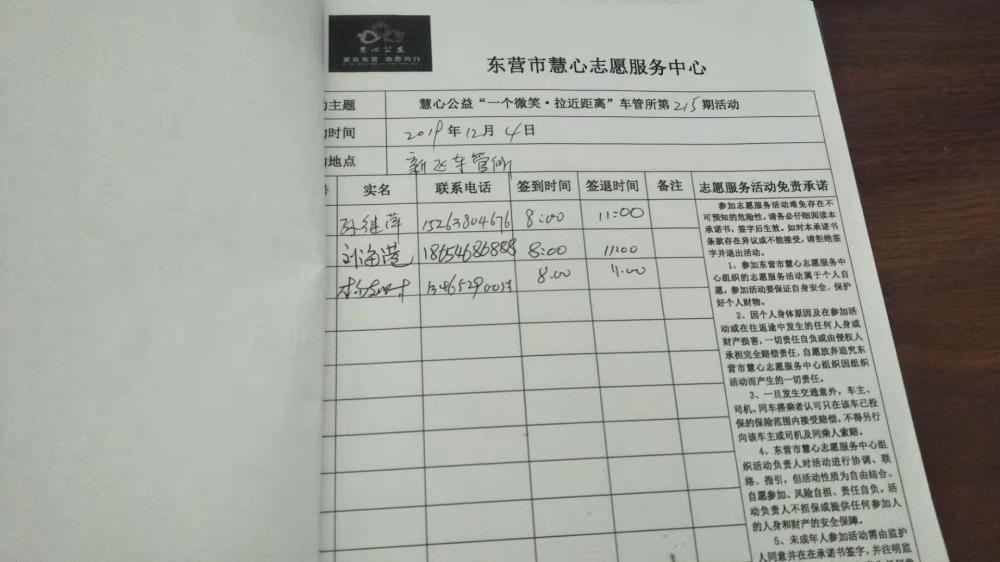 慧心公益
爱在东营 志愿同行
东营市慧心志愿服务中心
主题 慧心公益“一个微笑·拉近距离”车管所第215期活动
时间 2019年12月4日
地点 新飞车管所
实名 联系电话 签到时间 签退时间 备注 志愿服务活动免责承诺
孙继萍 15263804676 8:00 11:00
刘海莲 18654686888 8:00 11:00
8:00 11:00
参加志愿服务活动难免存在不
可预知的危险性,请务必仔细阅读本
承诺书,签字后生效。如对本承诺书
条款存在异议或不能接受,请拒绝签
字并退出活动。
1、参加东营市慧心志愿服务中
心组织的志愿服务活动属于个人自
愿,参加活动要保证自身安全、保护
好个人财物。
2、因个人身体原因及在参加活
动或在往返途中发生的任何人身或
财产损害,一切责任自负或由侵权人
承担完全赔偿责任,自愿放弃追究东
营市慧心志愿服务中心组织因组织
活动而产生的一切责任。
3、一旦发生交通意外,车主、
司机、同车搭乘者认可只在该车已投
保的保险范围内接受赔偿,不得另行
向该车主或司机及同乘人索赔。
4、东营市慧心志愿服务中心组
织活动负责人对活动进行协调、联
络、指引,但活动性质为自由结合、
自愿参加、风险自担、责任自负。活
动负责人不担保或提供任何参加人
的人身和财产的安全保障。
5、未成年人参加活动需由监护
人同意并在在承诺书签字,并注明监